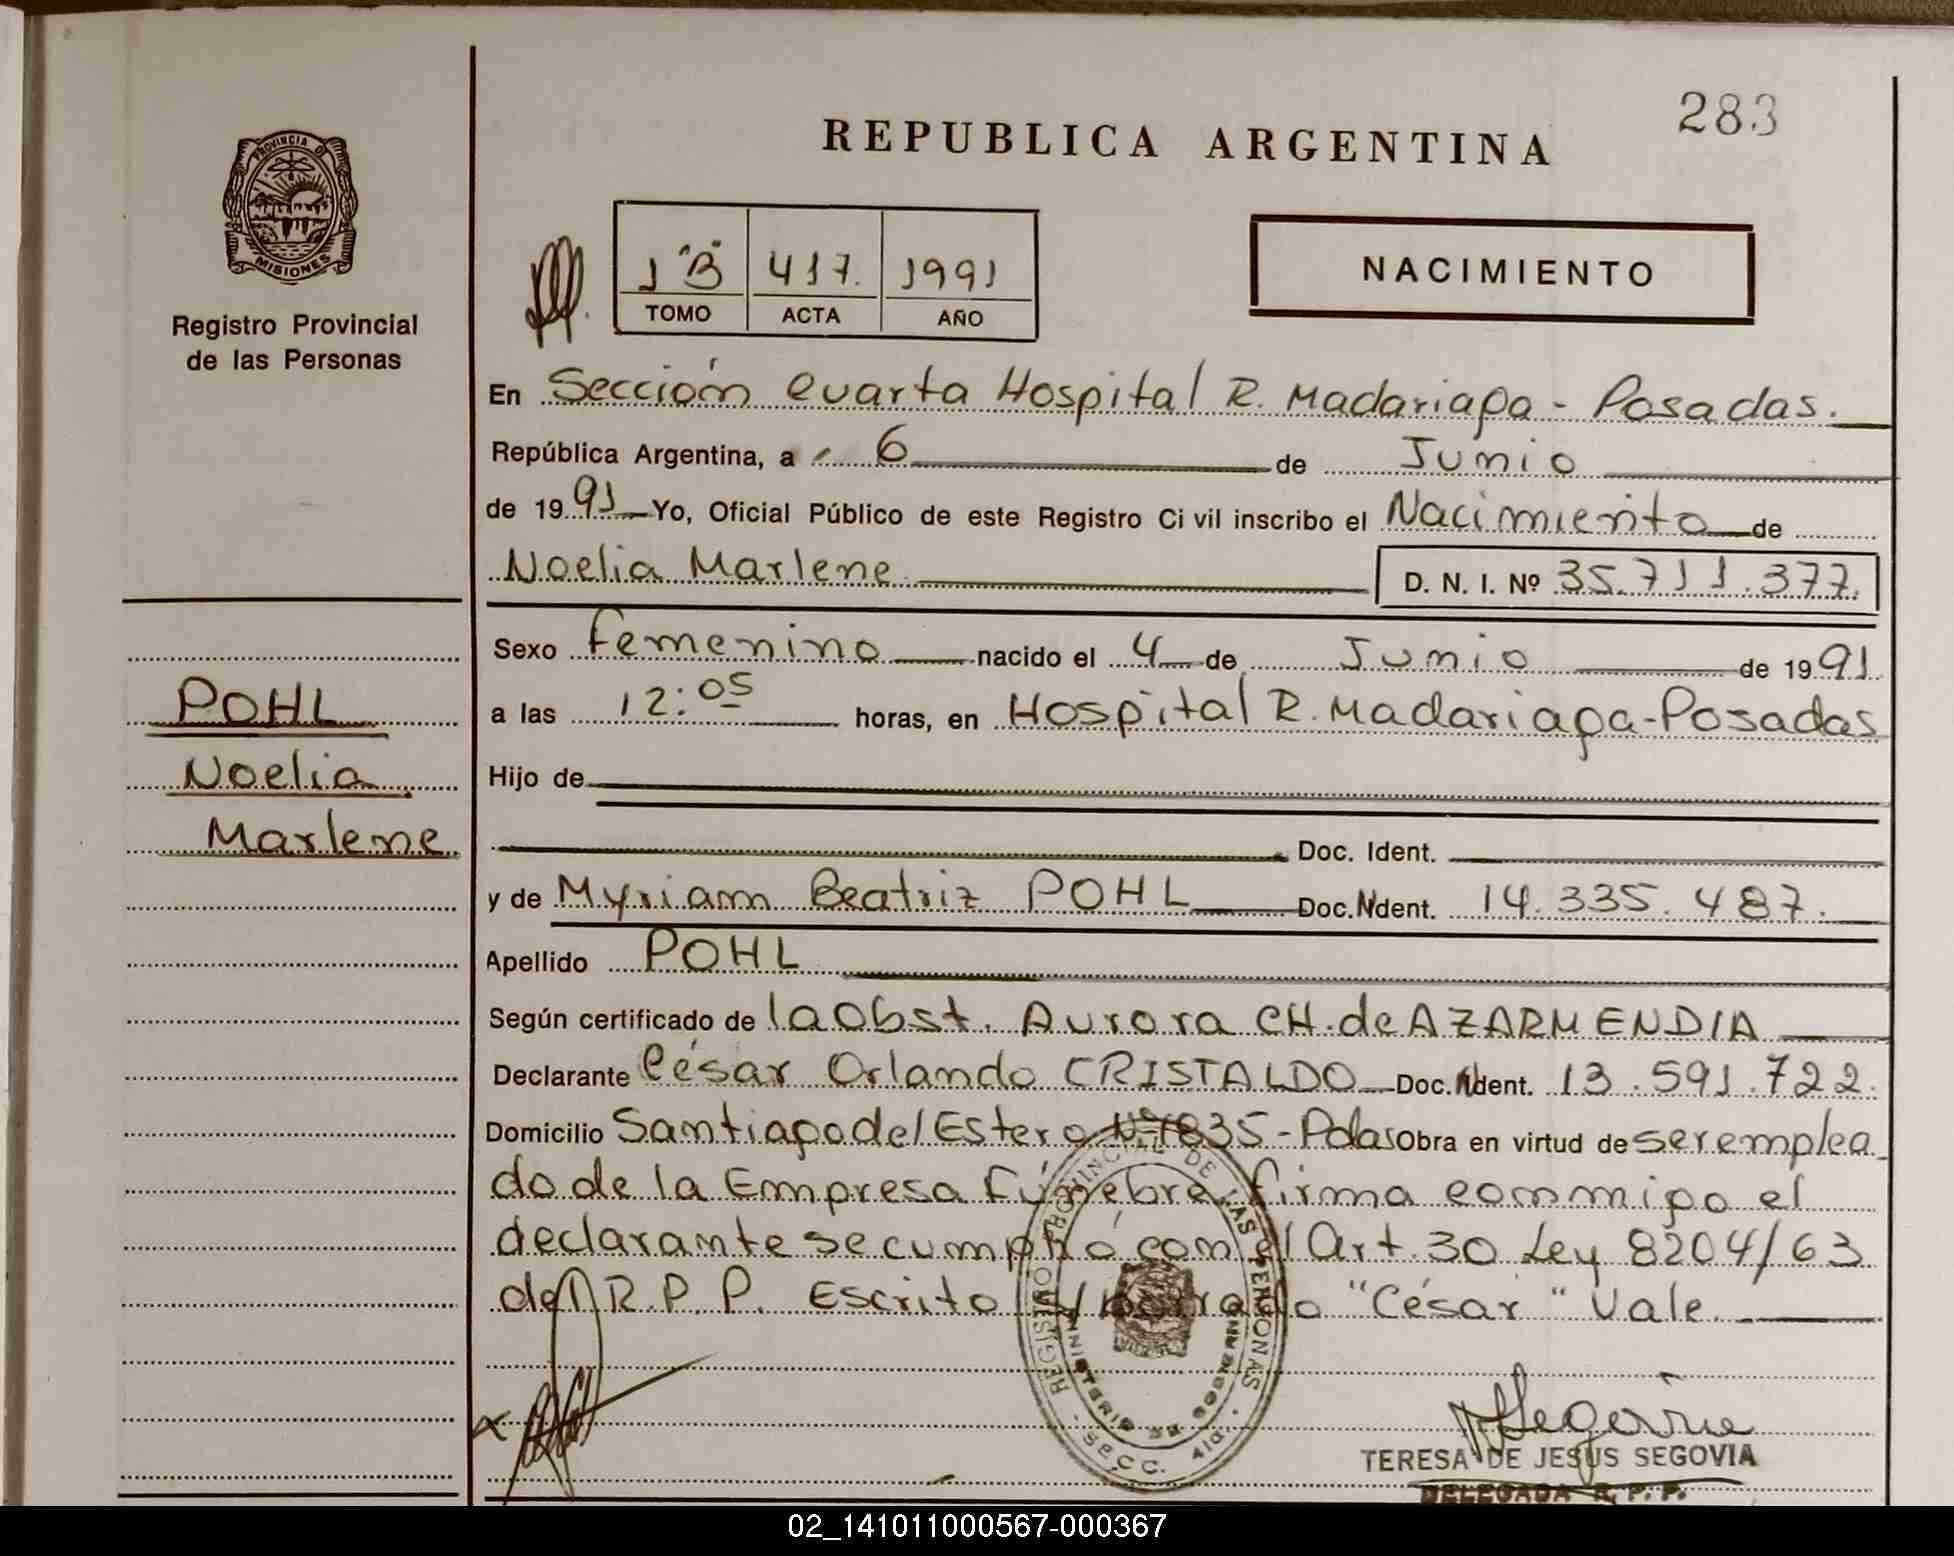 283
REPUBLICA ARGENTINA
PROVINCIA DE
MISIONES
Registro Provincial
de las Personas
1 "B" 417. 1991
TOMO ACTA AÑO
NACIMIENTO
En Sección Cuarta Hospital R. Madariaga - Posadas.
República Argentina, a 6 de Junio
de 1991 Yo, Oficial Público de este Registro Ci vil inscribo el Nacimiento de
Noelia Marlene D. N. I. Nº 35.711.377.
Sexo femenino nacido el 4 de Junio de 1991
a las 12:05 horas, en Hospital R. Madariaga-Posadas
Hijo de
Doc. Ident.
y de Myriam Beatriz POHL Doc. Ident. 14.335.487.
Apellido POHL
Según certificado de la Obst. Aurora CH. de AZARMENDIA
Declarante César Orlando CRISTALDO Doc. Ident. 13.591.722.
Domicilio Santiago del Estero Nº 1835 - Pdas Obra en virtud de ser emplea
do de la Empresa Fúnebre, firma conmigo el
declarante se cumplió con el Art. 30 Ley 8204/63
del R.P.P. Escrito s/borrado "César" Vale.
POHL
Noelia
Marlene
REGISTRO PROVINCIAL DE LAS PERSONAS
MINISTERIO DE GOBIERNO
SECC. 4ta.
TERESA DE JESUS SEGOVIA
DELEGADA R. P. P.
02_141011000567-000367